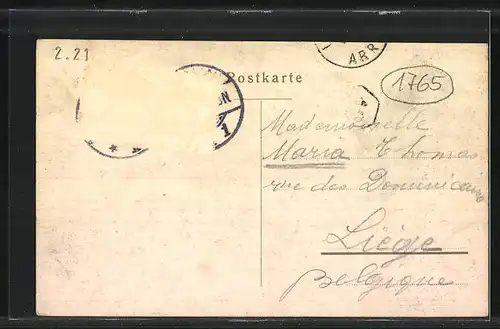 2.21
ARR
Postkarte
1765
ON
1
Mademoiselle
Maria Thomas
rue des Dominicains
Liége
Belgique